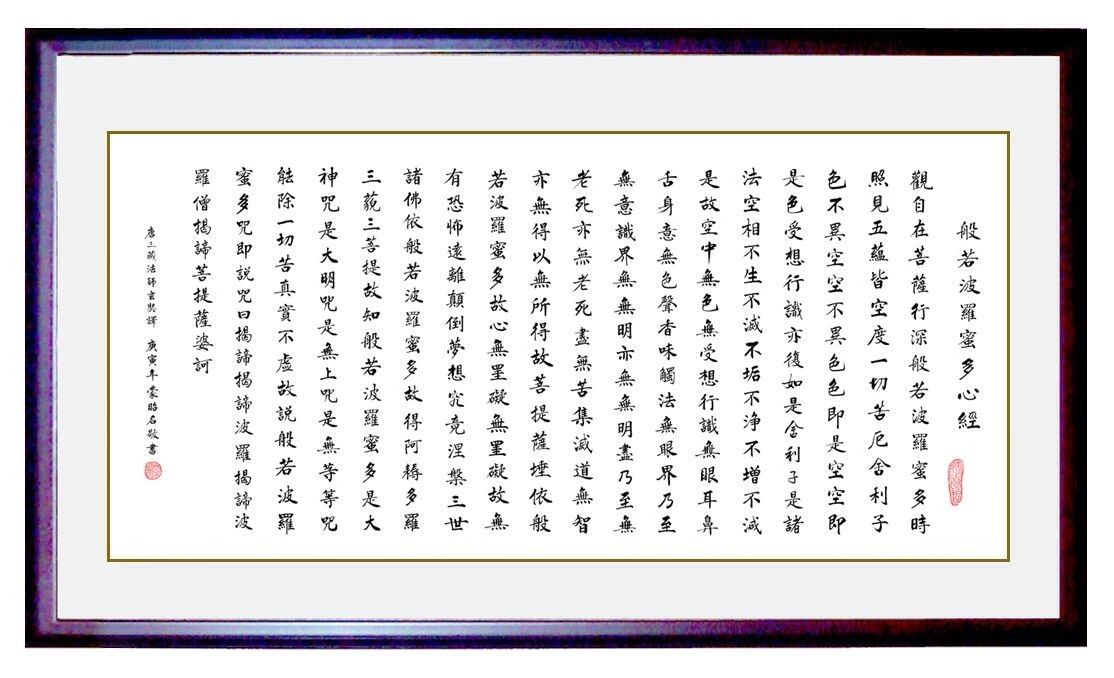 般若波羅蜜多心經
觀自在菩薩行深般若波羅蜜多時
照見五蘊皆空度一切苦厄舍利子
色不異空空不異色色即是空空即
是色受想行識亦復如是舍利子是諸
法空相不生不滅不垢不淨不增不減
是故空中無色無受想行識無眼耳鼻
舌身意無色聲香味觸法無眼界乃至
無意識界無無明亦無無明盡乃至無
老死亦無老死盡無苦集滅道無智
亦無得以無所得故菩提薩埵依般
若波羅蜜多故心無罣礙無罣礙故無
有恐怖遠離顛倒夢想究竟涅槃三世
諸佛依般若波羅蜜多故得阿耨多羅
三藐三菩提故知般若波羅蜜多是大
神咒是大明咒是無上咒是無等等咒
能除一切苦真實不虛故說般若波羅
蜜多咒即說咒曰揭諦揭諦波羅揭諦波
羅僧揭諦菩提薩婆訶
唐三藏法師玄奘譯 庚寅年名敬書